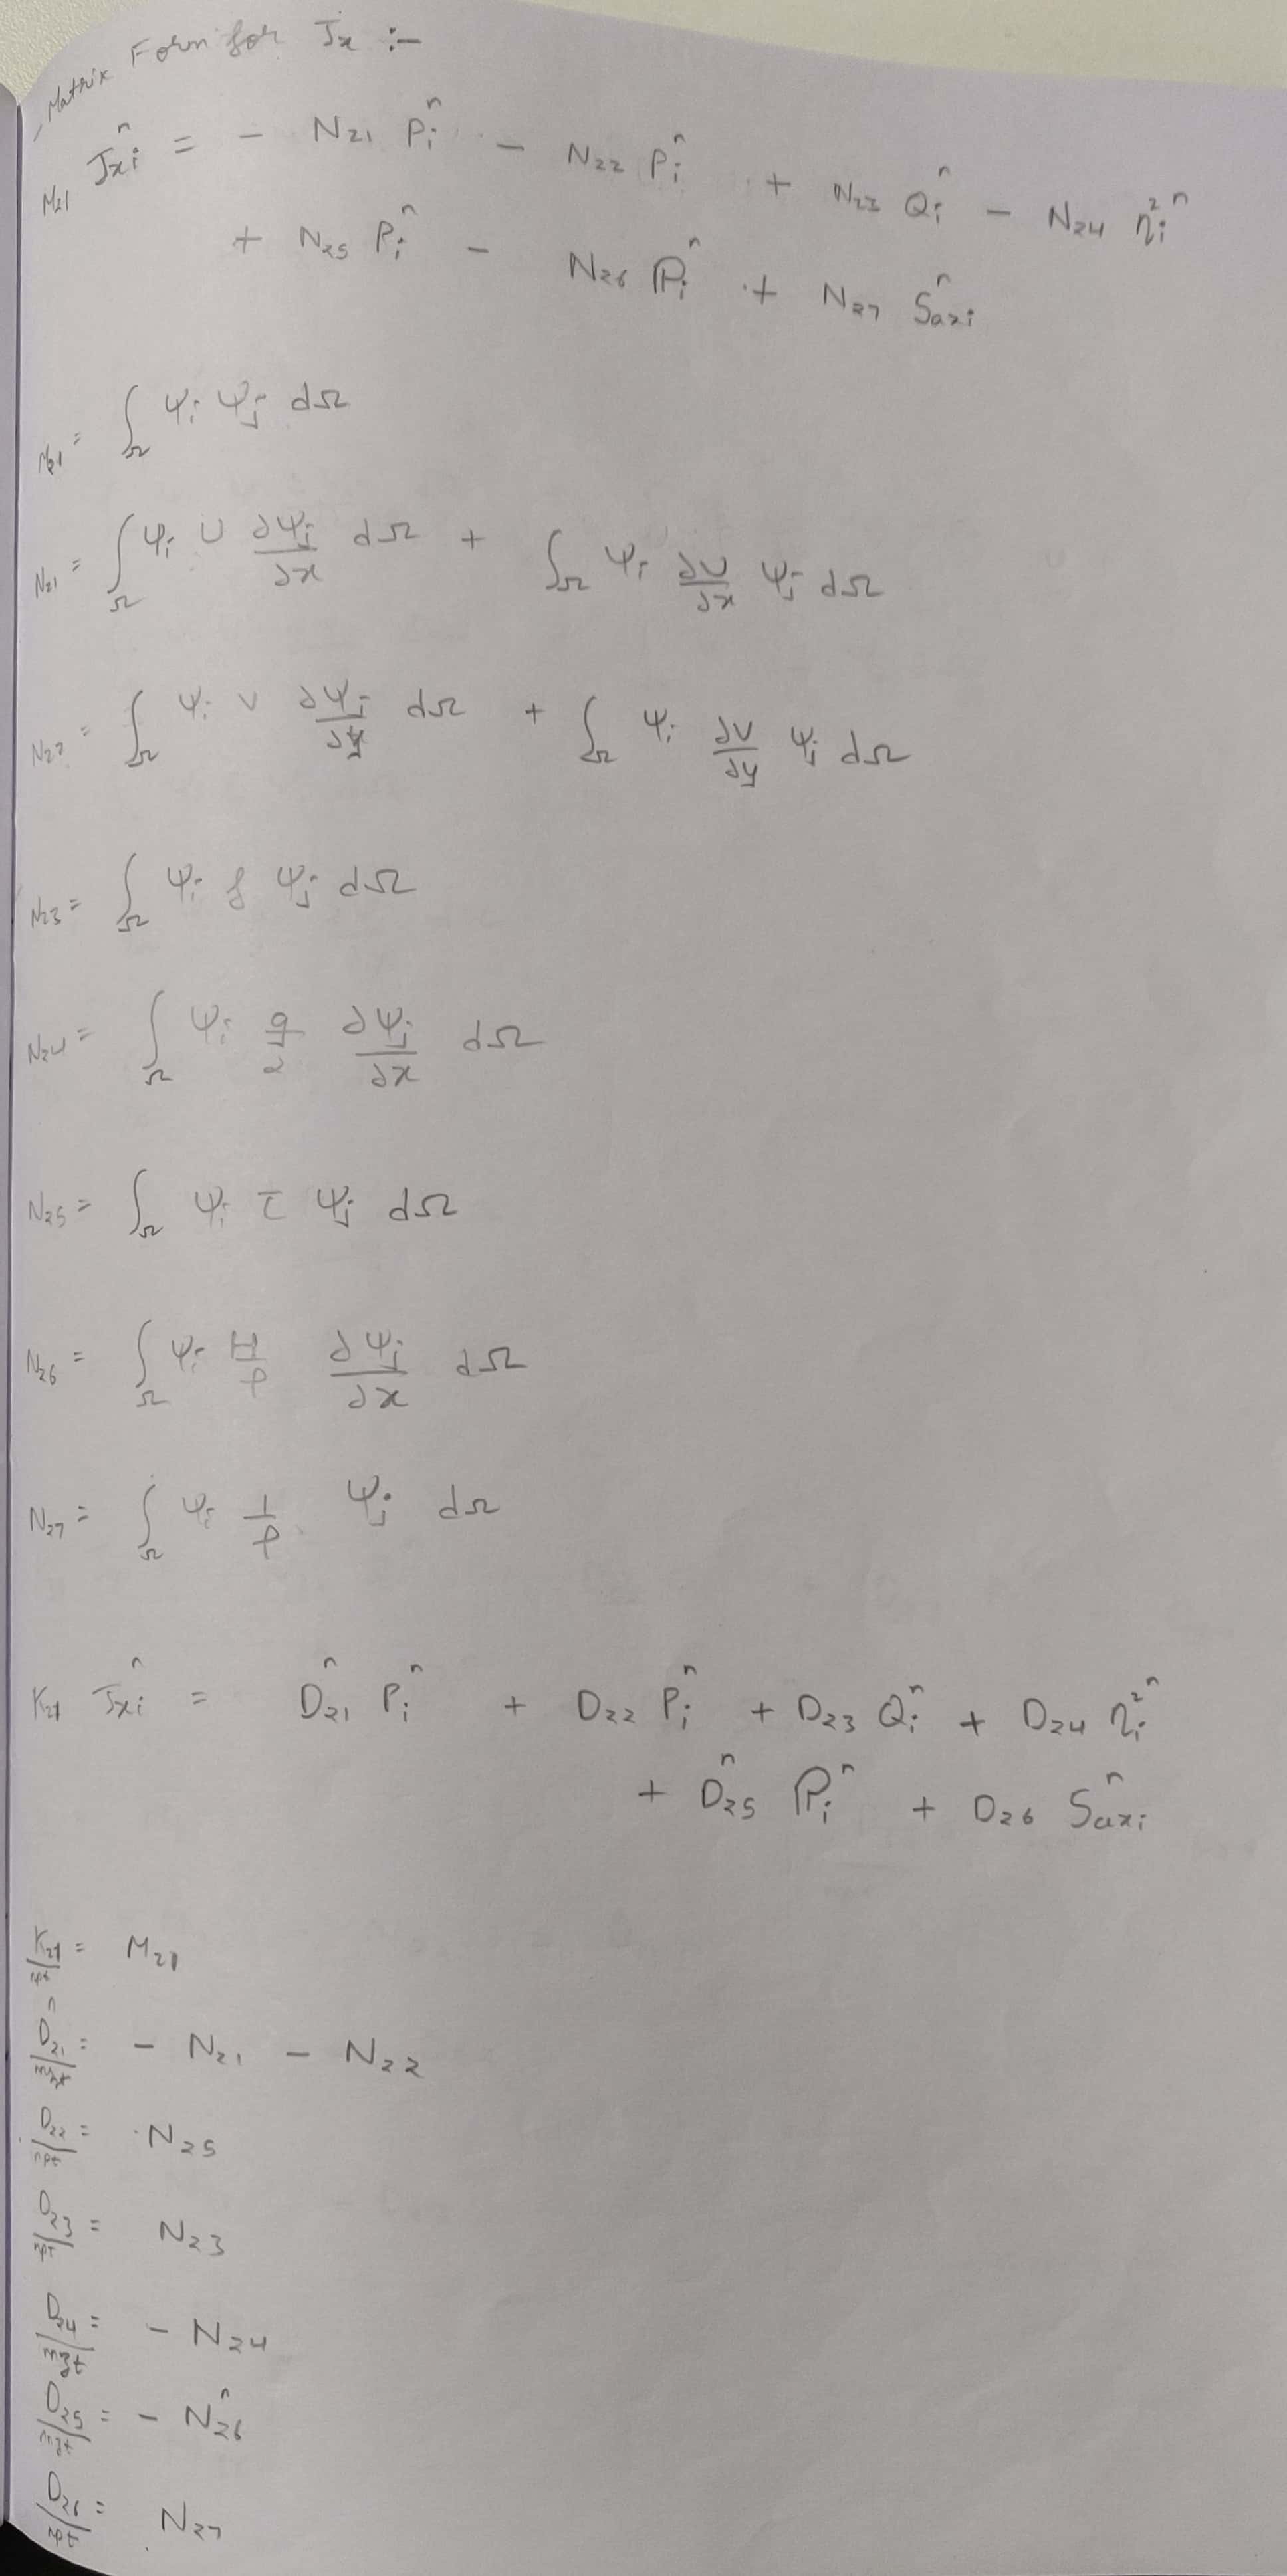 Matrix Form for Jx :-
M21 Jxi^n = - N21 Pi^n - N22 Pi^n + N23 Qi^n - N24 ηi^2^n
+ N25 Pi^n - N26 ℙi^n + N27 Saxi^n
M21 = ∫Ω ψi ψj dΩ
N21 = ∫Ω ψi U ∂ψj/∂x dΩ + ∫Ω ψi ∂U/∂x ψj dΩ
N22 = ∫Ω ψi V ∂ψj/∂y dΩ + ∫Ω ψi ∂V/∂y ψj dΩ
N23 = ∫Ω ψi f ψj dΩ
N24 = ∫Ω ψi g/2 ∂ψj/∂x dΩ
N25 = ∫Ω ψi τ ψj dΩ
N26 = ∫Ω ψi H/ρ ∂ψj/∂x dΩ
N27 = ∫Ω ψi 1/ρ ψj dΩ
K21 Jxi^n = D21^n Pi^n + D22 Pi^n + D23 Qi^n + D24 ηi^2^n
+ D25^n ℙi^n + D26 Saxi^n
K21 = M21
D21^n = - N21 - N22
D22 = N25
D23 = N23
D24 = - N24
D25 = - N26^n
D26 = N27